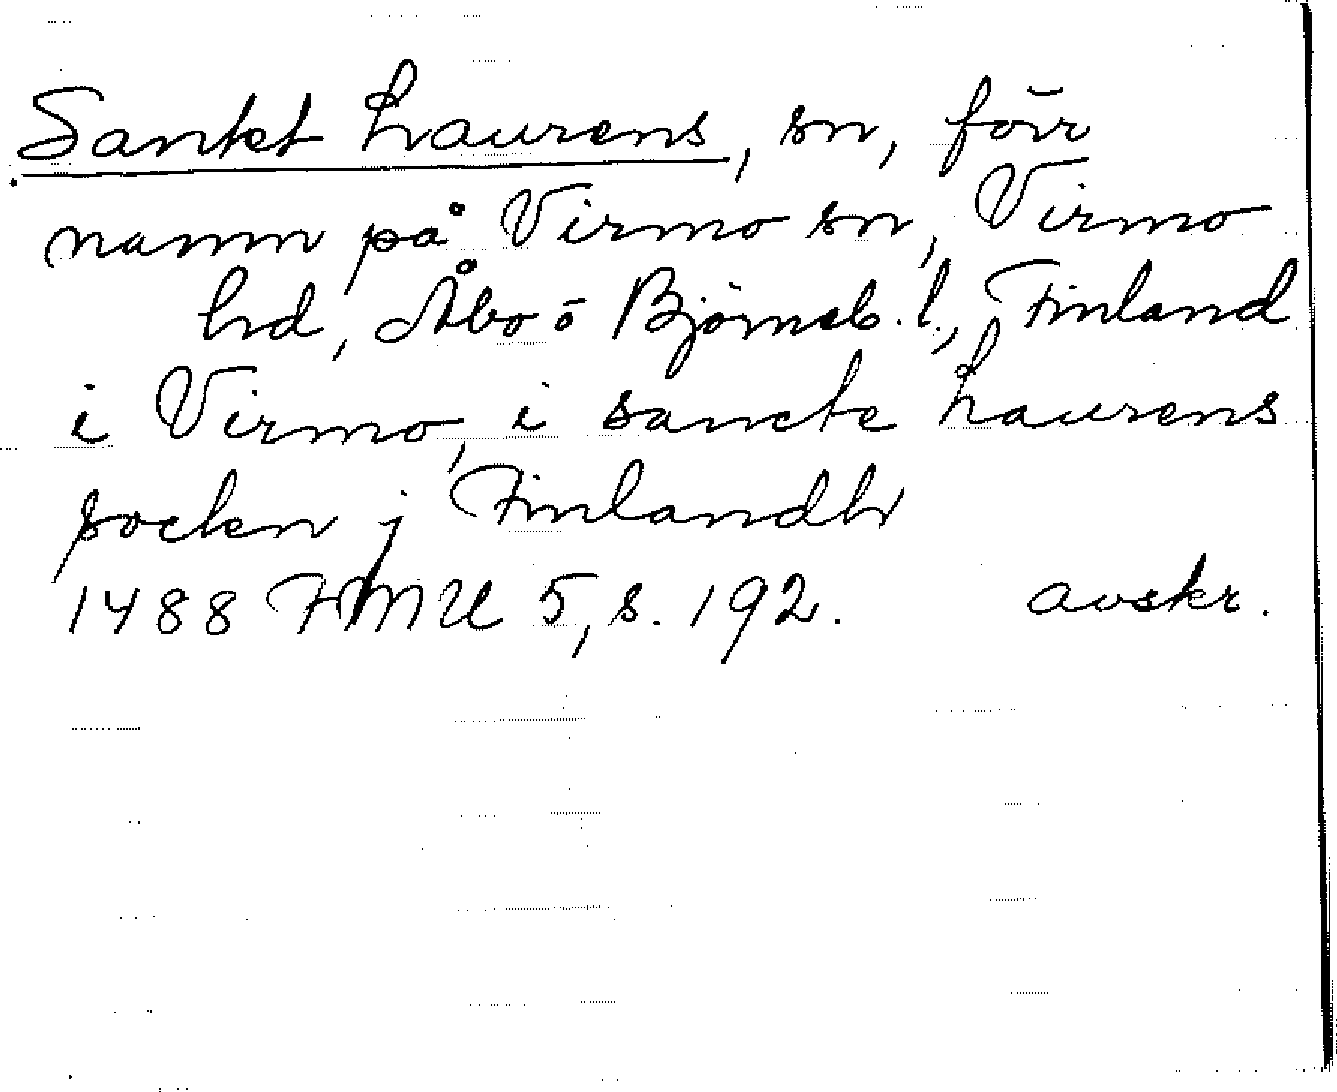 Sankt Laurens, sn, förr
namn på Virmo sn, Virmo
hd, Åbo o Björneb. l., Finland
i Virmo, i sancte Laurens
socken j Finlandh
1488 FMU 5, s. 192. avskr.